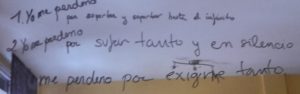 1. Yo me perdono
por esperar y esperar hasta el infinito
2. Yo me perdono
por sufrir tanto y en silencio
Yo me perdono por exigirme tanto